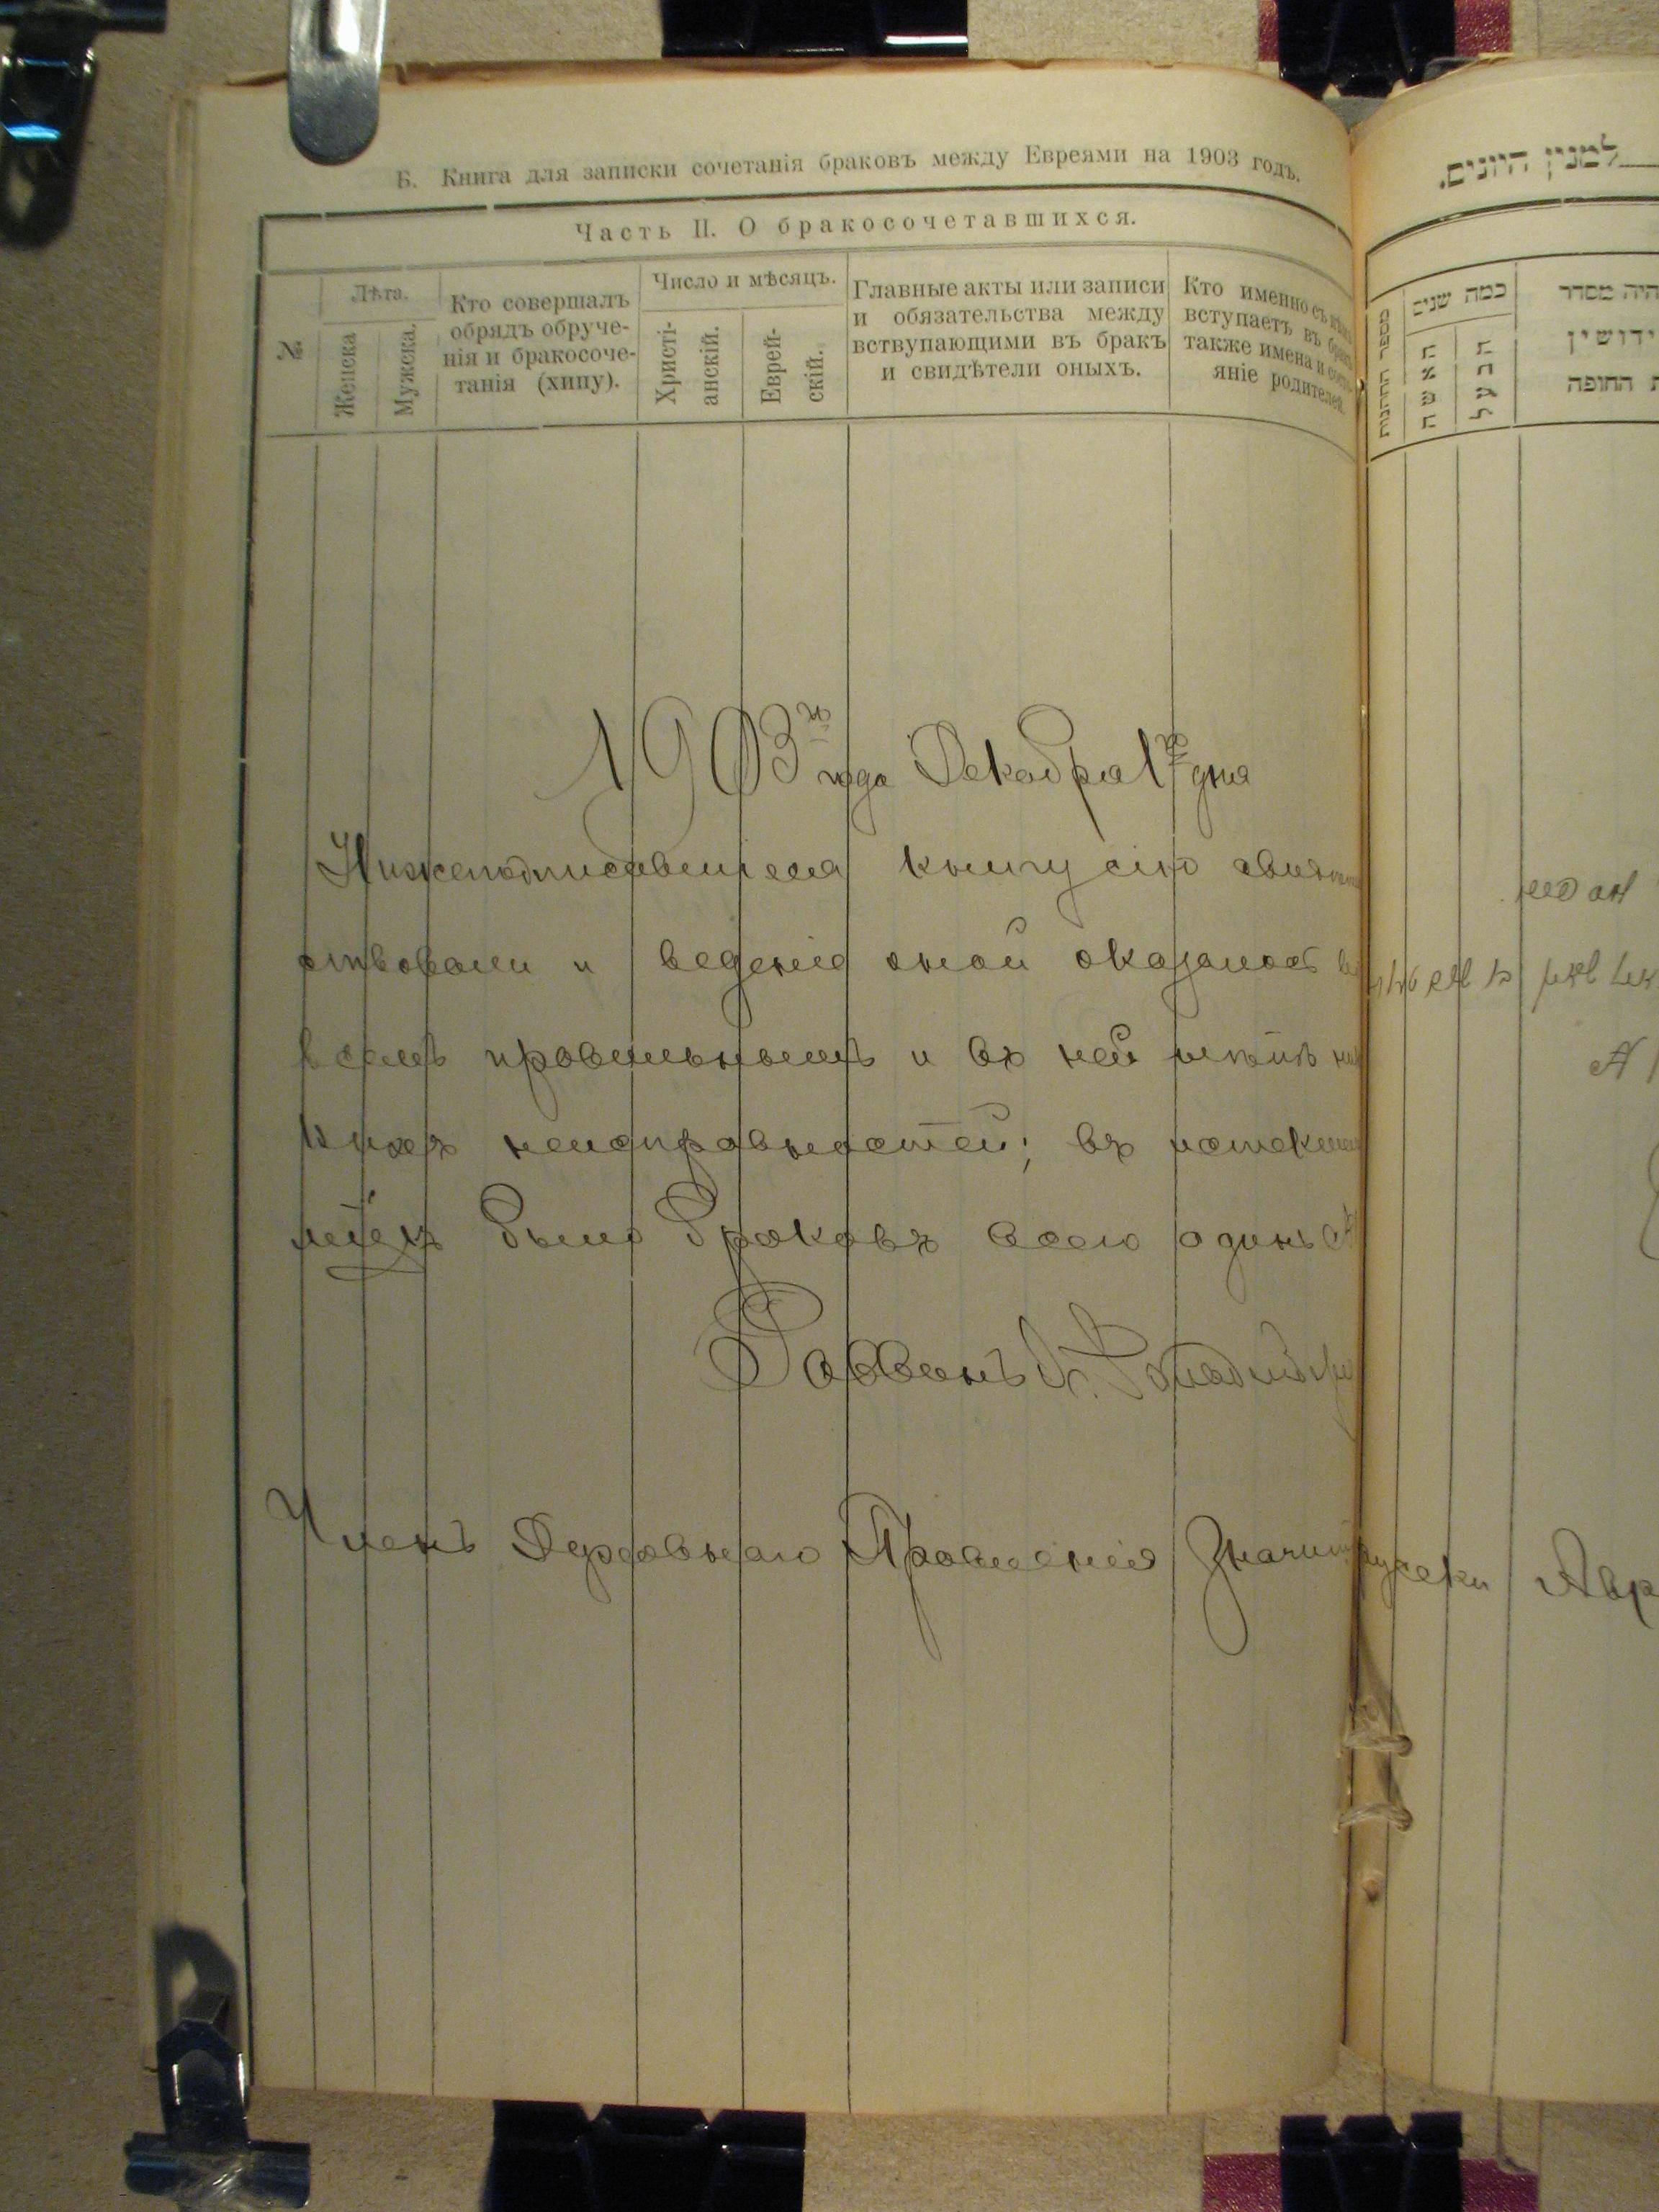 Б. Книга для записки сочетанія браковъ между Евреями на 1903 годъ.
Часть II. О бракосочетавшихся.
№
Лѣта.
Женска
Мужска.
Кто совершалъ
обрядъ обруче-
нія и бракосоче-
танія (хипу).
Число и мѣсяцъ.
Христі-
анскій.
Еврей-
скій.
Главные акты или записи
и обязательства между
вствупающими въ бракъ
и свидѣтели оныхъ.
Кто именно съ кѣмъ
вступаетъ въ бракъ
также имена и состо-
яніе родителей.
1903го года Декабря 1го дня
Нижеподписавшіеся книгу сію
ствовали и веденіе оной оказалось
всемъ правильнымъ и въ ней нѣтъ ни
кихъ неисправностей; въ
было браковъ всего одинъ
Раввинъ
Членъ Духовнаго Правленія
למנין היונים.
מספר החתונות
כמה שנים
האשה
הבעל
היה מסדר
ידושין
ת החופה
Авр